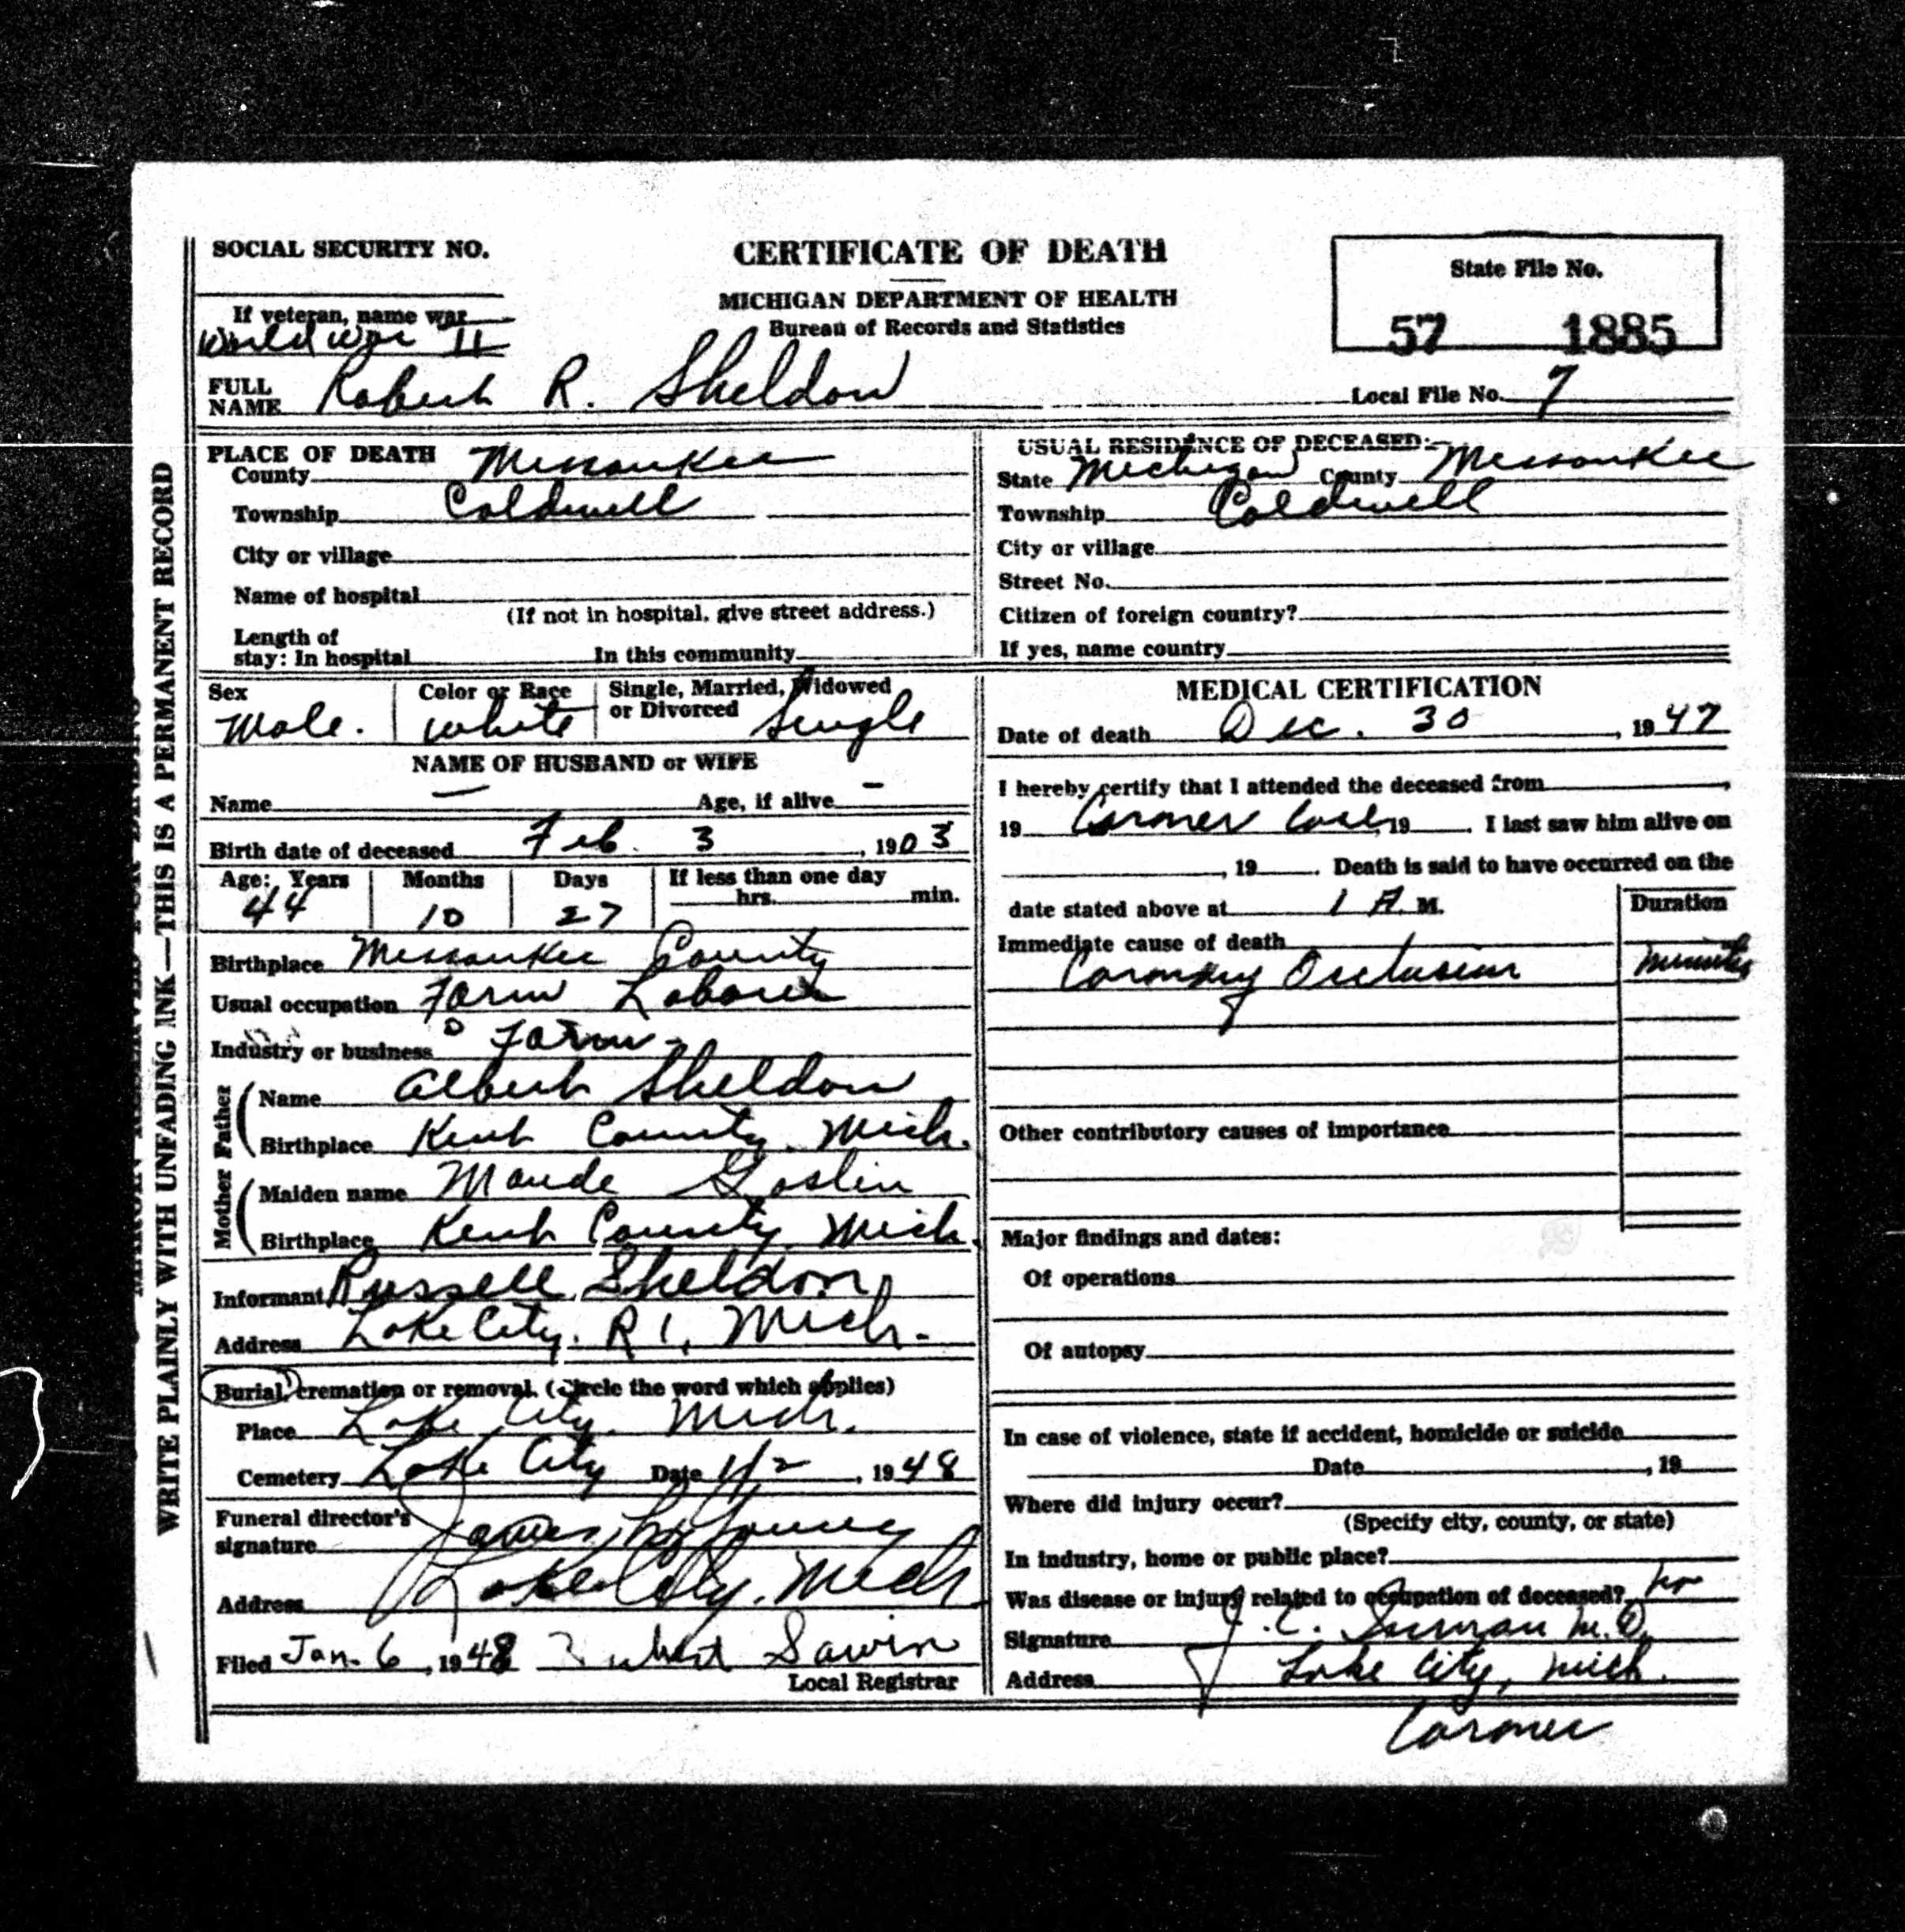 SOCIAL SECURITY NO.
CERTIFICATE OF DEATH
MICHIGAN DEPARTMENT OF HEALTH
Bureau of Records and Statistics
State File No.
57 1885
If veteran, name war
World War II
FULL NAME Robert R. Sheldon
Local File No. 7
WRITE PLAINLY WITH UNFADING INK—THIS IS A PERMANENT RECORD
PLACE OF DEATH
County Missaukee
Township Caldwell
City or village
Name of hospital
(If not in hospital, give street address.)
Length of
stay: In hospital In this community
USUAL RESIDENCE OF DECEASED:
State Michigan County Missaukee
Township Caldwell
City or village
Street No.
Citizen of foreign country?
If yes, name country
Sex Color or Race Single, Married, Widowed or Divorced
Male. White Single
NAME OF HUSBAND or WIFE
Name — Age, if alive —
Birth date of deceased Feb. 3, 1903
Age: Years Months Days If less than one day
44 10 27 hrs. min.
Birthplace Missaukee County
Usual occupation Farm Laborer
Industry or business Farm
Father
Name Albert Sheldon
Birthplace Kent County Mich.
Mother
Maiden name Maude Goslin
Birthplace Kent County Mich.
Informant Russell Sheldon
Address Lake City. R 1, Mich.
Burial, cremation or removal. (Circle the word which applies)
Place Lake City. Mich.
Cemetery Lake City Date 1/2, 1948
Funeral director's
signature James Young
Address Lake City, Mich
Filed Jan. 6, 1948 Sawin
Local Registrar
MEDICAL CERTIFICATION
Date of death Dec. 30, 1947
I hereby certify that I attended the deceased from ,
19 Coroner Case, 19 . I last saw him alive on
, 19 . Death is said to have occurred on the
date stated above at 1 A M.
Duration
Immediate cause of death
Coronary Occlusion minutes
Other contributory causes of importance
Major findings and dates:
Of operations
Of autopsy
In case of violence, state if accident, homicide or suicide
Date , 19
Where did injury occur?
(Specify city, county, or state)
In industry, home or public place?
Was disease or injury related to occupation of deceased? no
Signature J. C. M. D.
Address Lake City, Mich.
Coroner